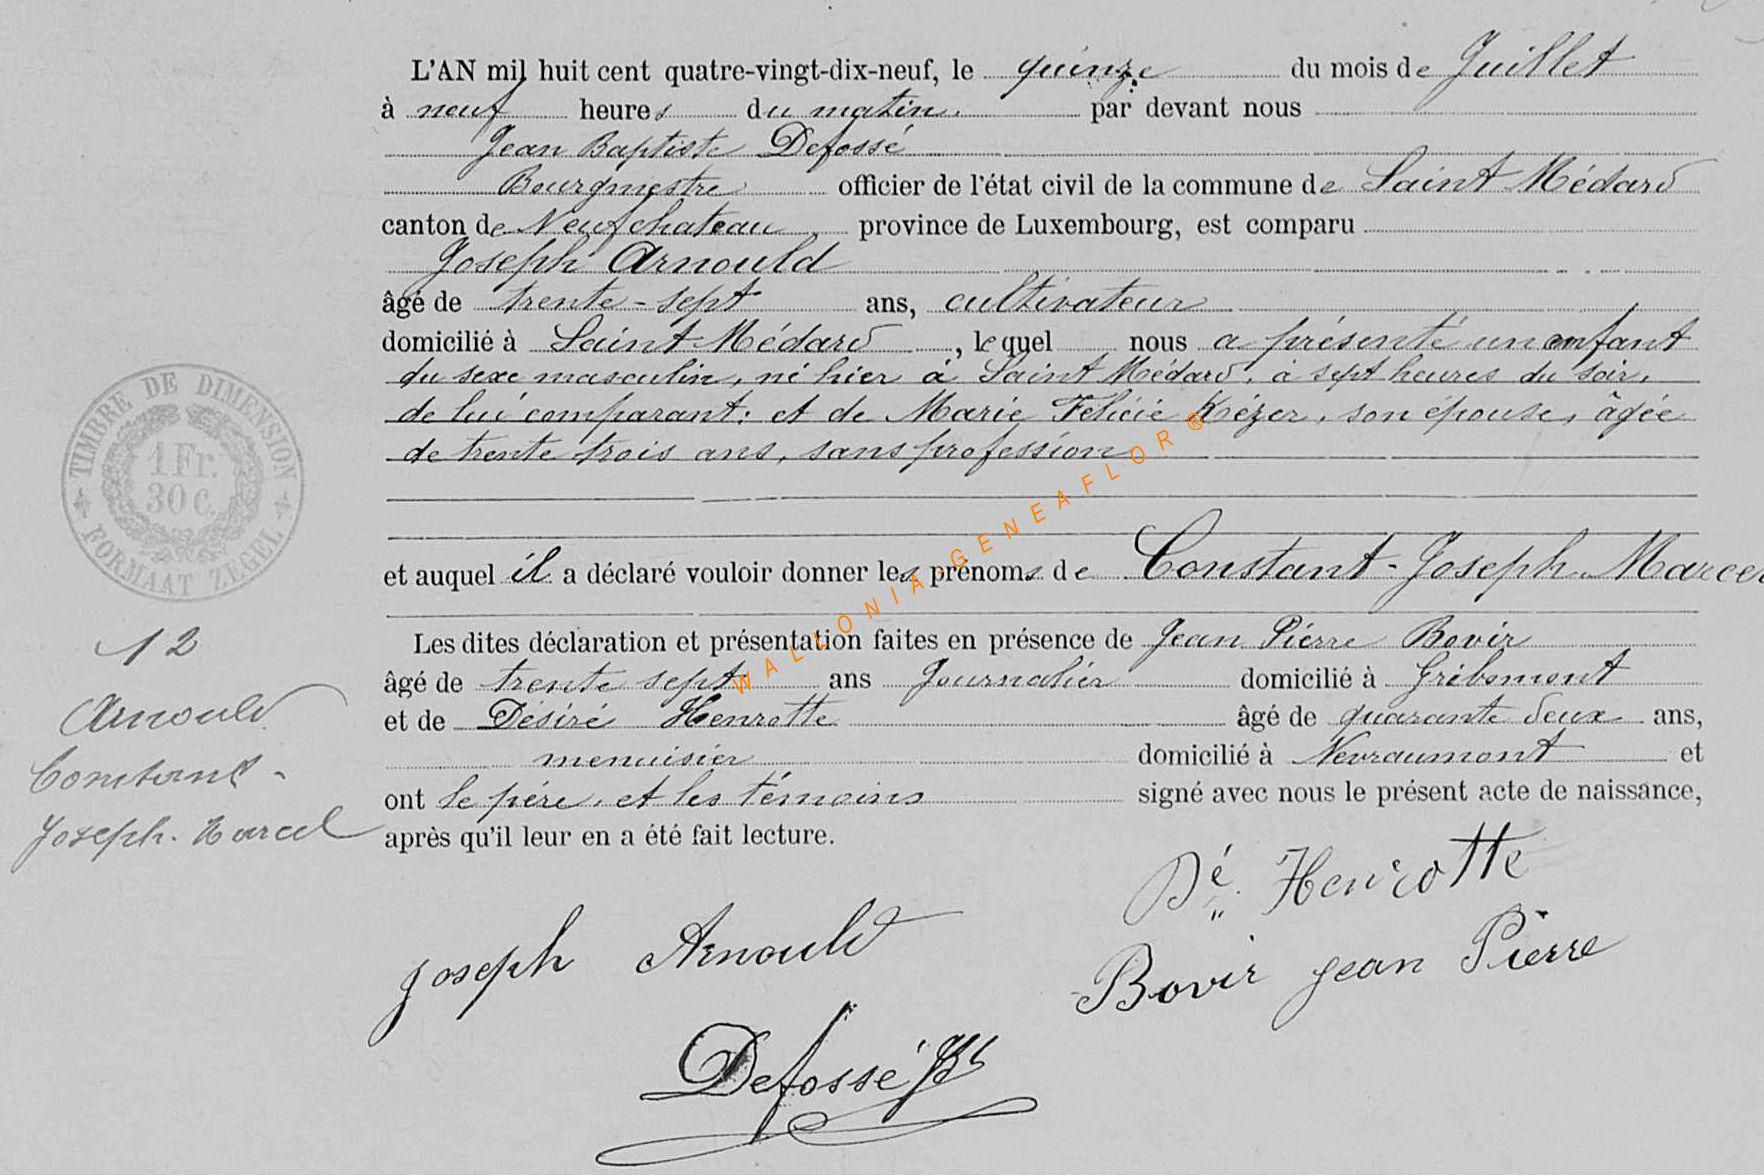 L'AN mil huit cent quatre-vingt-dix-neuf, le quinze du mois de Juillet
à neuf heures du matin. par devant nous
Jean Baptiste Defossé
Bourgmestre officier de l'état civil de la commune de Saint Médard
canton de Neufchateau, province de Luxembourg, est comparu
Joseph Arnould
âgé de trente-sept ans, cultivateur
domicilié à Saint Médard, lequel nous a présenté un enfant
du sexe masculin, né hier à Saint Médard, à sept heures du soir,
de lui comparant: et de Marie Félicie Kézer, son épouse, âgée
de trente trois ans, sans profession
et auquel il a déclaré vouloir donner les prénoms de Constant-Joseph Marcel
Les dites déclaration et présentation faites en présence de Jean Pierre Bovir
âgé de trente sept ans Journalier domicilié à Gribomont
et de Désiré Henrotte âgé de quarante deux ans,
menuisier domicilié à Nevraumont et
ont le père, et les témoins signé avec nous le présent acte de naissance,
après qu'il leur en a été fait lecture.
TIMBRE DE DIMENSION
1 Fr.
30 C.
FORMAAT ZEGEL
12
Arnould
Constant-
Joseph. Marcel
Dé. Henrotte
Joseph Arnould
Bovir Jean Pierre
Defossé JB
WALLONIA-GENEAFLOR®